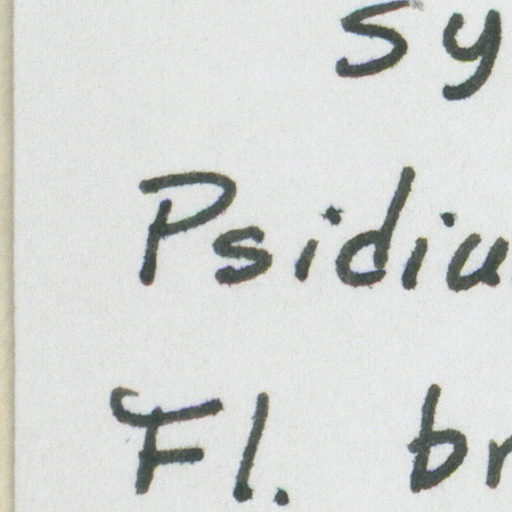 sy
Psidiu
Fl. br